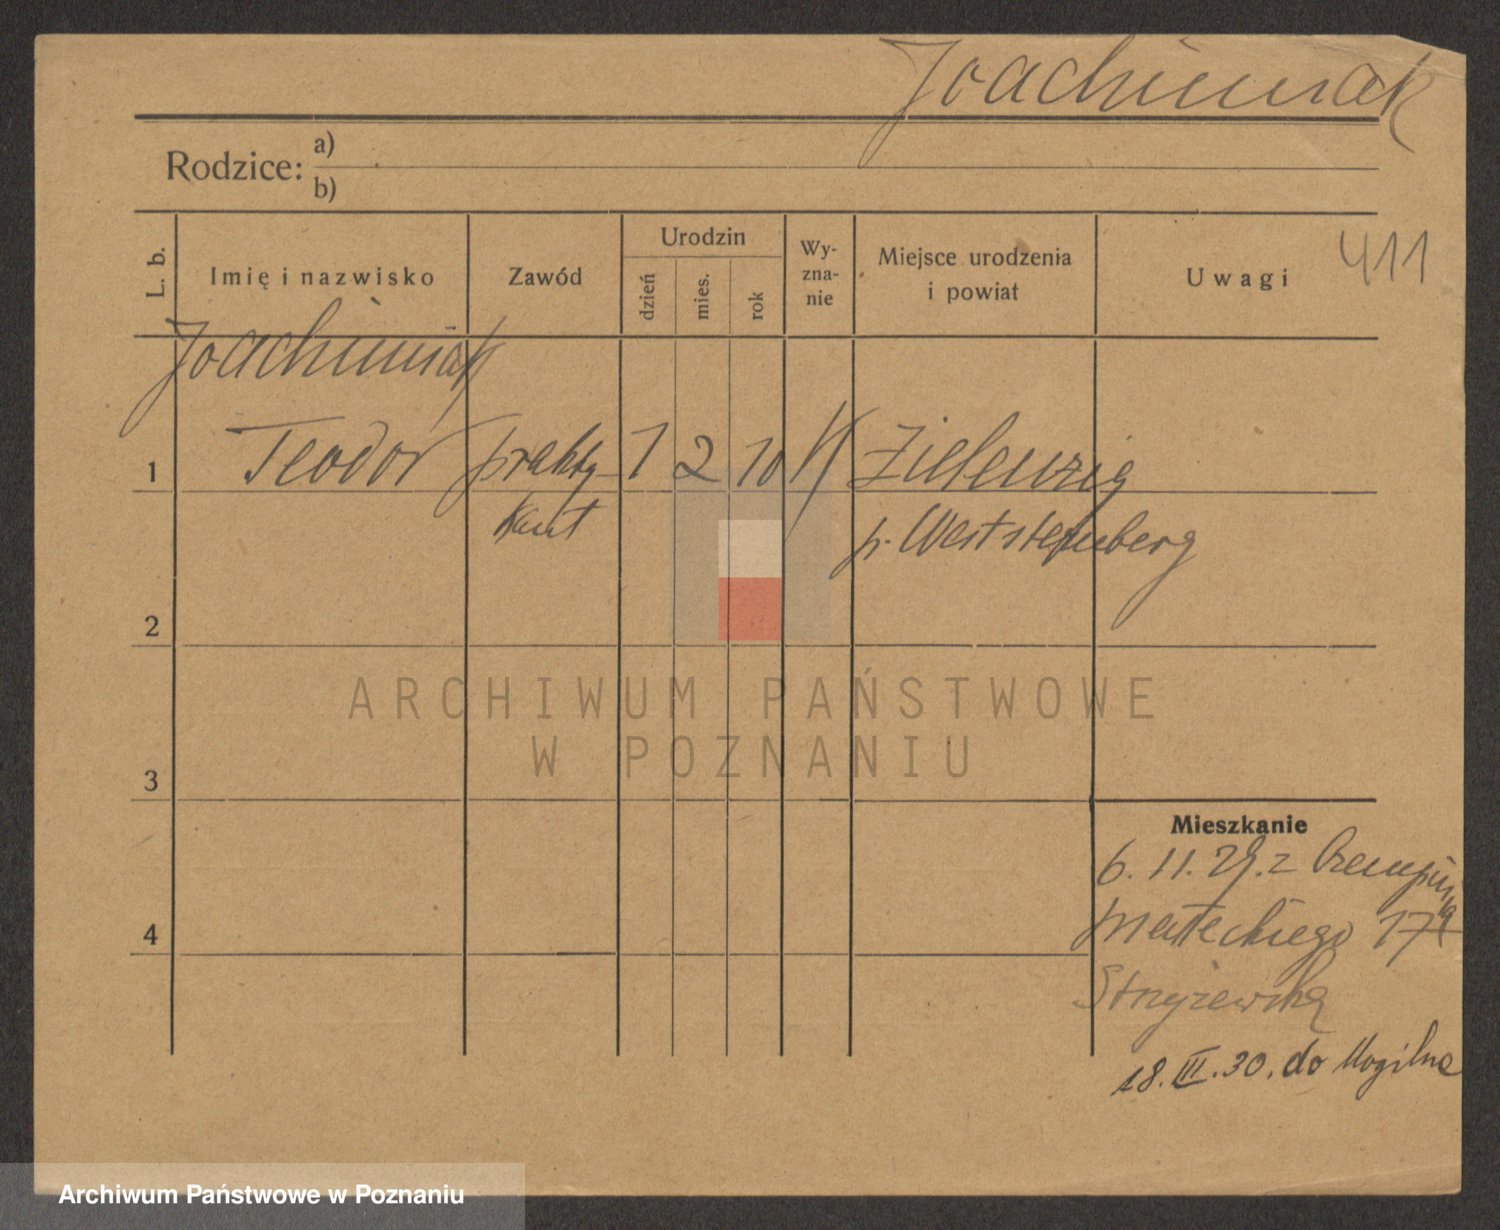 Joachimiak
Rodzice: a)
b)
L. b.
Imię i nazwisko
Zawód
Urodzin
dzień
mies.
rok
Wy-
zna-
nie
Miejsce urodzenia
i powiat
Uwagi
411
Joachimiak
1 Teodor prakty- 1 2 10 K Zielenzig
kant p. Weststernberg
2
ARCHIWUM PAŃSTWOWE
W POZNANIU
3
Mieszkanie
6. 11. 29. z Czempinia
4 Małeckiego 17
Stryżewska
18. III. 30. do Mogilna
Archiwum Państwowe w Poznaniu